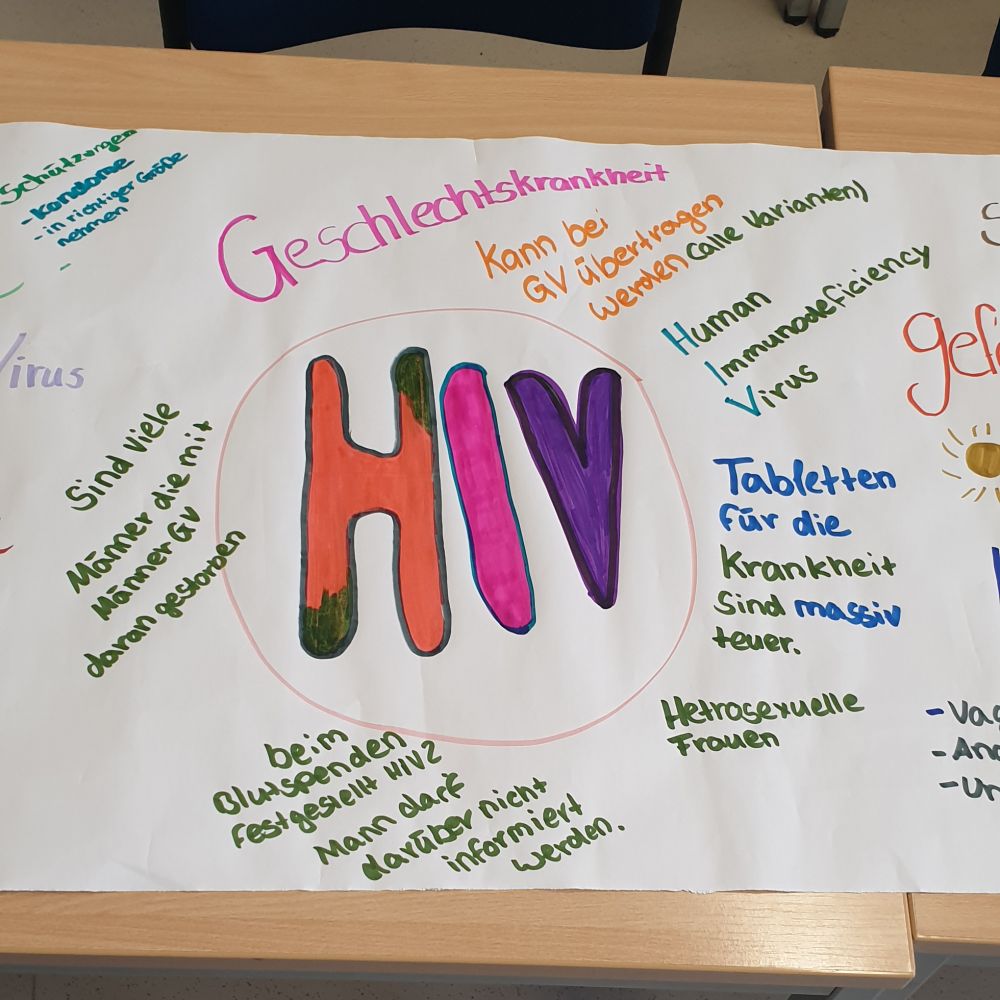 Schützungen
- Kondome
- in richtiger Größe
nehmen
-
Geschlechtskrankheit
Kann bei
GV übertragen
werden (alle Varianten)
Human
Immunodeficiency
Virus
Virus
Sind viele
Männer die mit
Männer GV
daran gestorben
HIV
Tabletten
für die
Krankheit
Sind massiv
teuer.
Hetrosexuelle
Frauen
beim
Blutspenden
festgestellt HIV2
Mann darf
darüber nicht
informiert
werden.